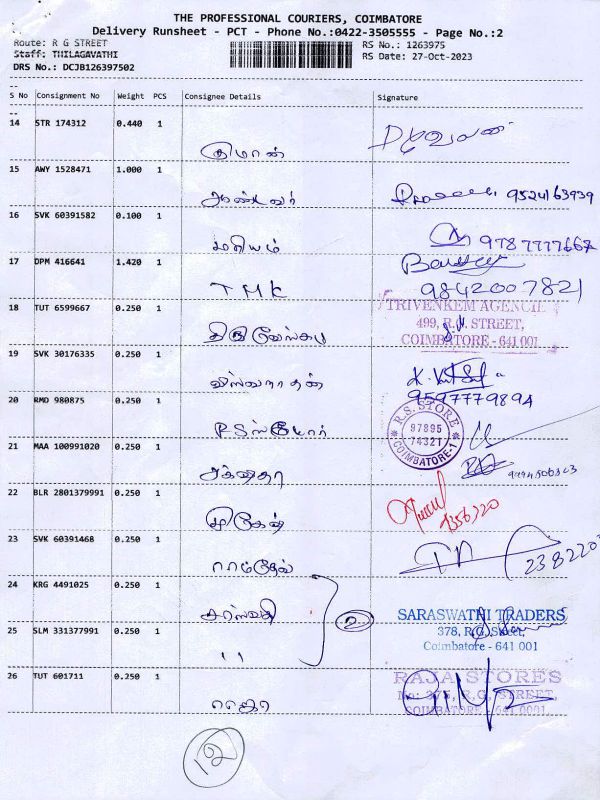 THE PROFESSIONAL COURIERS, COIMBATORE
Delivery Runsheet - PCT - Phone No.:0422-3505555 - Page No.:2
Route: R G STREET
RS No.: 1263975
Staff: THILAGAVATHI
RS Date: 27-Oct-2023
DRS No.: DCJB126397502
S No Consignment No Weight PCS Consignee Details Signature
14 STR 174312 0.440 1
15 AWY 1528471 1.000 1
9524163939
16 SVK 60391582 0.100 1
மரியம் 9787777667
17 DPM 416641 1.420 1
TMK 9842007821
18 TUT 6599667 0.250 1
TRIVENKEM AGENCIE
499, R.G. STREET,
COIMBATORE - 641 001
19 SVK 30176335 0.250 1
விஸ்வநாதன்
9597779894
20 RMD 980875 0.250 1
RSஸ்டோர்
R.S. STORE
97895
74321
COIMBATORE-1
21 MAA 100991020 0.250 1
22 BLR 2801379991 0.250 1
முகேஷ்
23 SVK 60391468 0.250 1
ராம்தேவ்
24 KRG 4491025 0.250 1
சரஸ்வதி
2
SARASWATHI TRADERS
378, R.G. Street,
Coimbatore - 641 001
25 SLM 331377991 0.250 1
26 TUT 601711 0.250 1
ராஜா
RAJA STORES
No: 375, R.G. STREET,
COIMBATORE - 641 0001
12